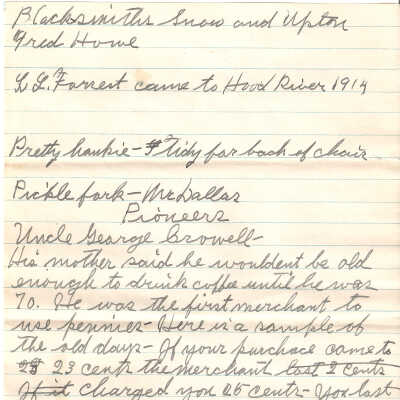 Blacksmiths Snow and Upton
Fred Howe
L L Forrest came to Hood River 1914
Pretty hankie - tidy for back of chair
Pickle fork - McDallas
Pioneers
Uncle George Crowell -
His mother said he wouldent be old
enough to drink coffee until he was
70. He was the first merchant to
use pennies - Here is a sample of
the old days - If your purchace came to
23 cents the merchant lost 2 cents
If it charged you 25 cents - You lost